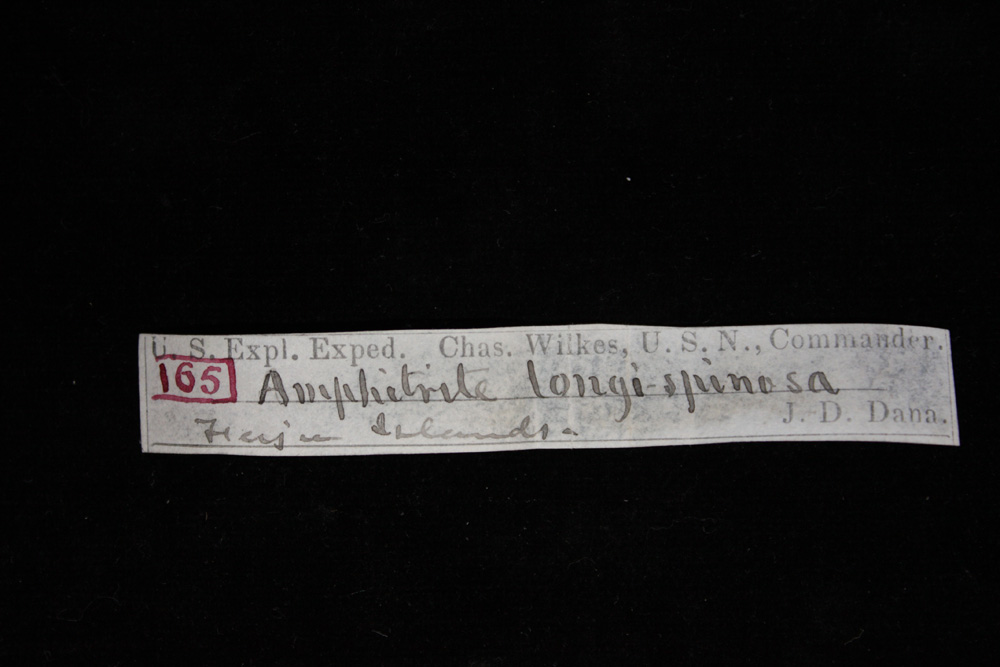 U. S. Expl. Exped. Chas. Wilkes, U. S. N., Commander.
165 Amphitrite longi-spinosa
J. D. Dana.
Feejee Islands.